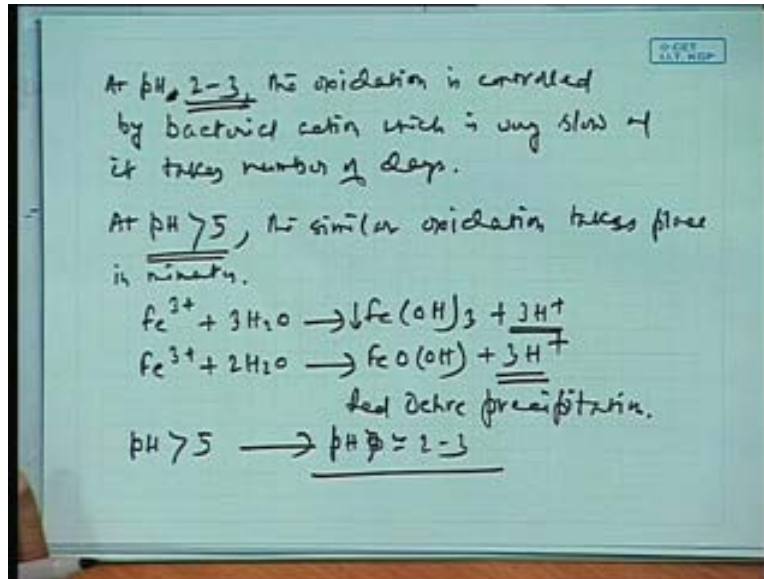 © CET
I.I.T. KGP
At pH 2-3, the oxidation is controlled
by bacterial action which is very slow &
it takes number of days.
At pH >5, the similar oxidation takes place
in minutes.
Fe³⁺ + 3H₂O → ↓Fe(OH)₃ + 3H⁺
Fe³⁺ + 2H₂O → FeO(OH) + 3H⁺
Red Ochre precipitation.
pH >5 → pH ≃ 2-3